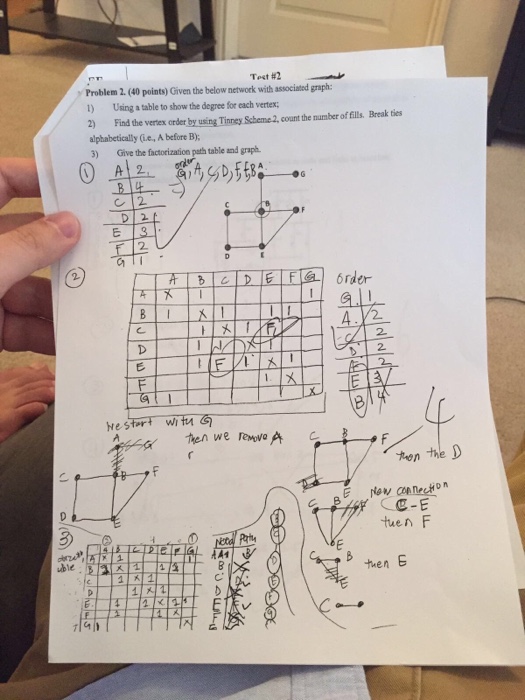 Test #2
Problem 2. (40 points) Given the below network with associated graph:
1) Using a table to show the degree for each vertex;
2) Find the vertex order by using Tinney Scheme 2, count the number of fills. Break ties
alphabetically (i.e., A before B);
3) Give the factorization path table and graph.
1
A 2
B 4
C 2
D 2
E 3
F 2
G 1
order
G, A, C, D, F, E, B
A
G
C
B
F
D
E
2
A B C D E F G
A X 1 1
B 1 X 1 1 1
C 1 X 1 F
D 1 X 1
E 1 F 1 X 1
F 1 X
G 1 X
order
G 1
A 2
C 2
D 2
F 2
E 3
B 4
We start with G
Then we remove A
A
G
C
B
F
D
E
C
B
F
D
E
4
then the D
New connection
C-E
then F
C
B
E
then E
C
B
E
C
3)
A B C D E F G
A X 1 1
B 1 X 1 1 1
C 1 X 1
D 1 X 1
E 1 1 X 1
F 1 1 X
G 1 X
Node Path
A
B
C
D
E
F